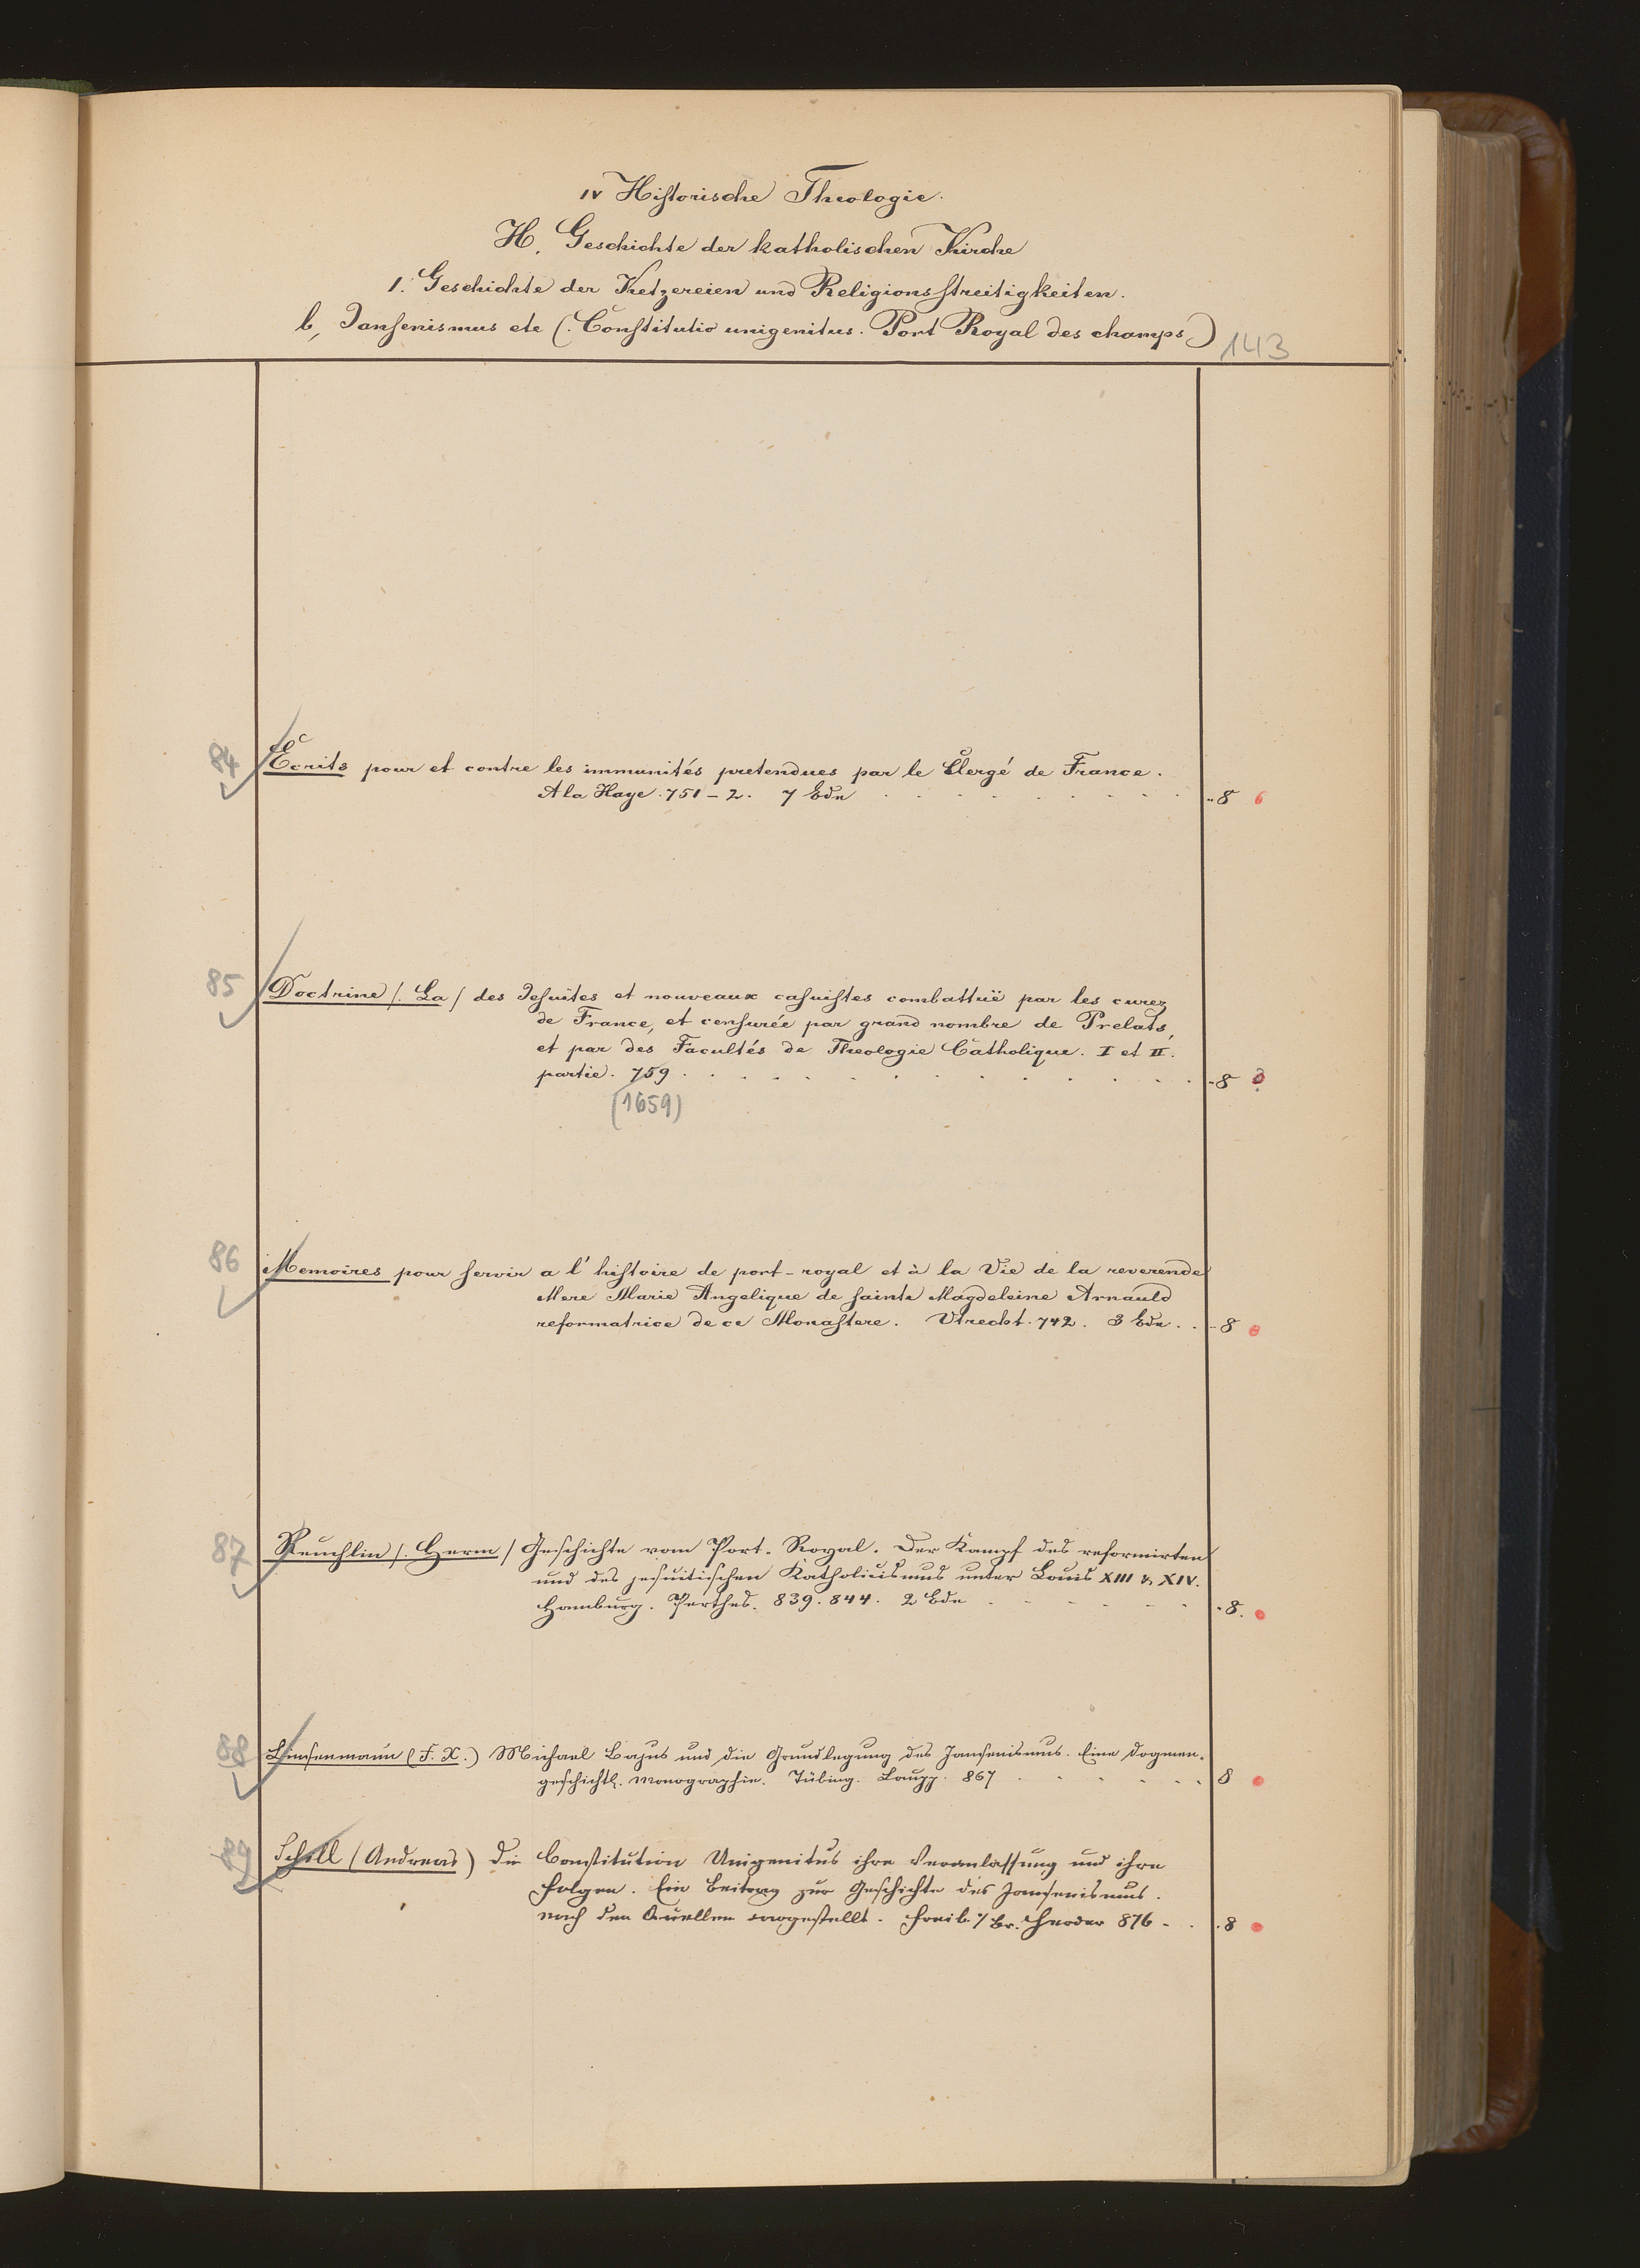 IV Historische Theologie.
H. Geschichte der katholischen Kirche
1. Geschichte der Ketzereien und Religionsstreitigkeiten.
b, Jansenismus etc (: Constitutio unigenitus. Port Royal des champs)
143
84 Ecrits pour et contre les immunités pretendues par le Clergé de France.
A la Haye. 751-2. 7 Bde . . . . . . . . . 8 6
85 Doctrine /: La / des Jesuites et nouveaux casuistes combattuë par les curez
de France, et censurée par grand nombre de Prelats,
et par des Facultés de Theologie Catholique. I et II.
partie. 759 . . . . . . . . . . . 8
(1659)
86 Memoires pour servir a l'histoire de port-royal et à la Vie de la reverende
Mere Marie Angelique de sainte Magdeleine Arnauld
reformatrice de ce Monastere. Utrecht. 742. 3 Bde . . . 8
87 Reuchlin /: Herm / Geschichte vom Port-Royal. Der Kampf des reformirten
und des jesuitischen Katholicismus unter Louis XIII & XIV.
Hamburg. Perthes. 839. 844. 2 Bde . . . . . . 8.
88 Linsenmann (F. X.) Michael Bajus und die Grundlegung des Jansenismus. Eine dogmen-
geschichtl. Monographie. Tübing. Laupp. 867 . . . . . . . 8
89 Schill (Andreas) Die Constitution Unigenitus ihre Veranlassung und ihre
Folgen. Ein Beitrag zur Geschichte des Jansenismus.
nach den Quellen dargestellt. Freib. i/Br. Herder 876 - . . 8